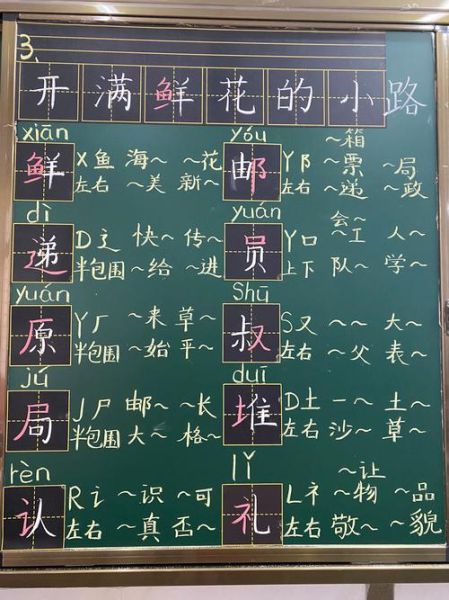 3.
开满鲜花的小路
xiān
鲜 X 鱼 海～ ～花
左右 ～美 新～
yóu
邮 Y 阝 ～箱 ～票 ～局
左右 ～递 ～政
dì
递 D 辶 快～ 传～
半包围 ～给 ～进
yuán
员 Y 口 会～ ～工 人～
上下 队～ 学～
yuán
原 Y 厂 ～来 草～
半包围 ～始 平～
Shū
叔 S 又 ～～ 大～
左右 ～父 表～
jú
局 J 尸 邮～ ～长
半包围 大～ 格～
duī
堆 D 土 一～ 土～
左右 沙～ 草～
rèn
认 R 讠 ～识 ～可
左右 ～真 否～
lǐ
礼 L 礻 ～让 ～物 ～品
左右 敬～ ～貌